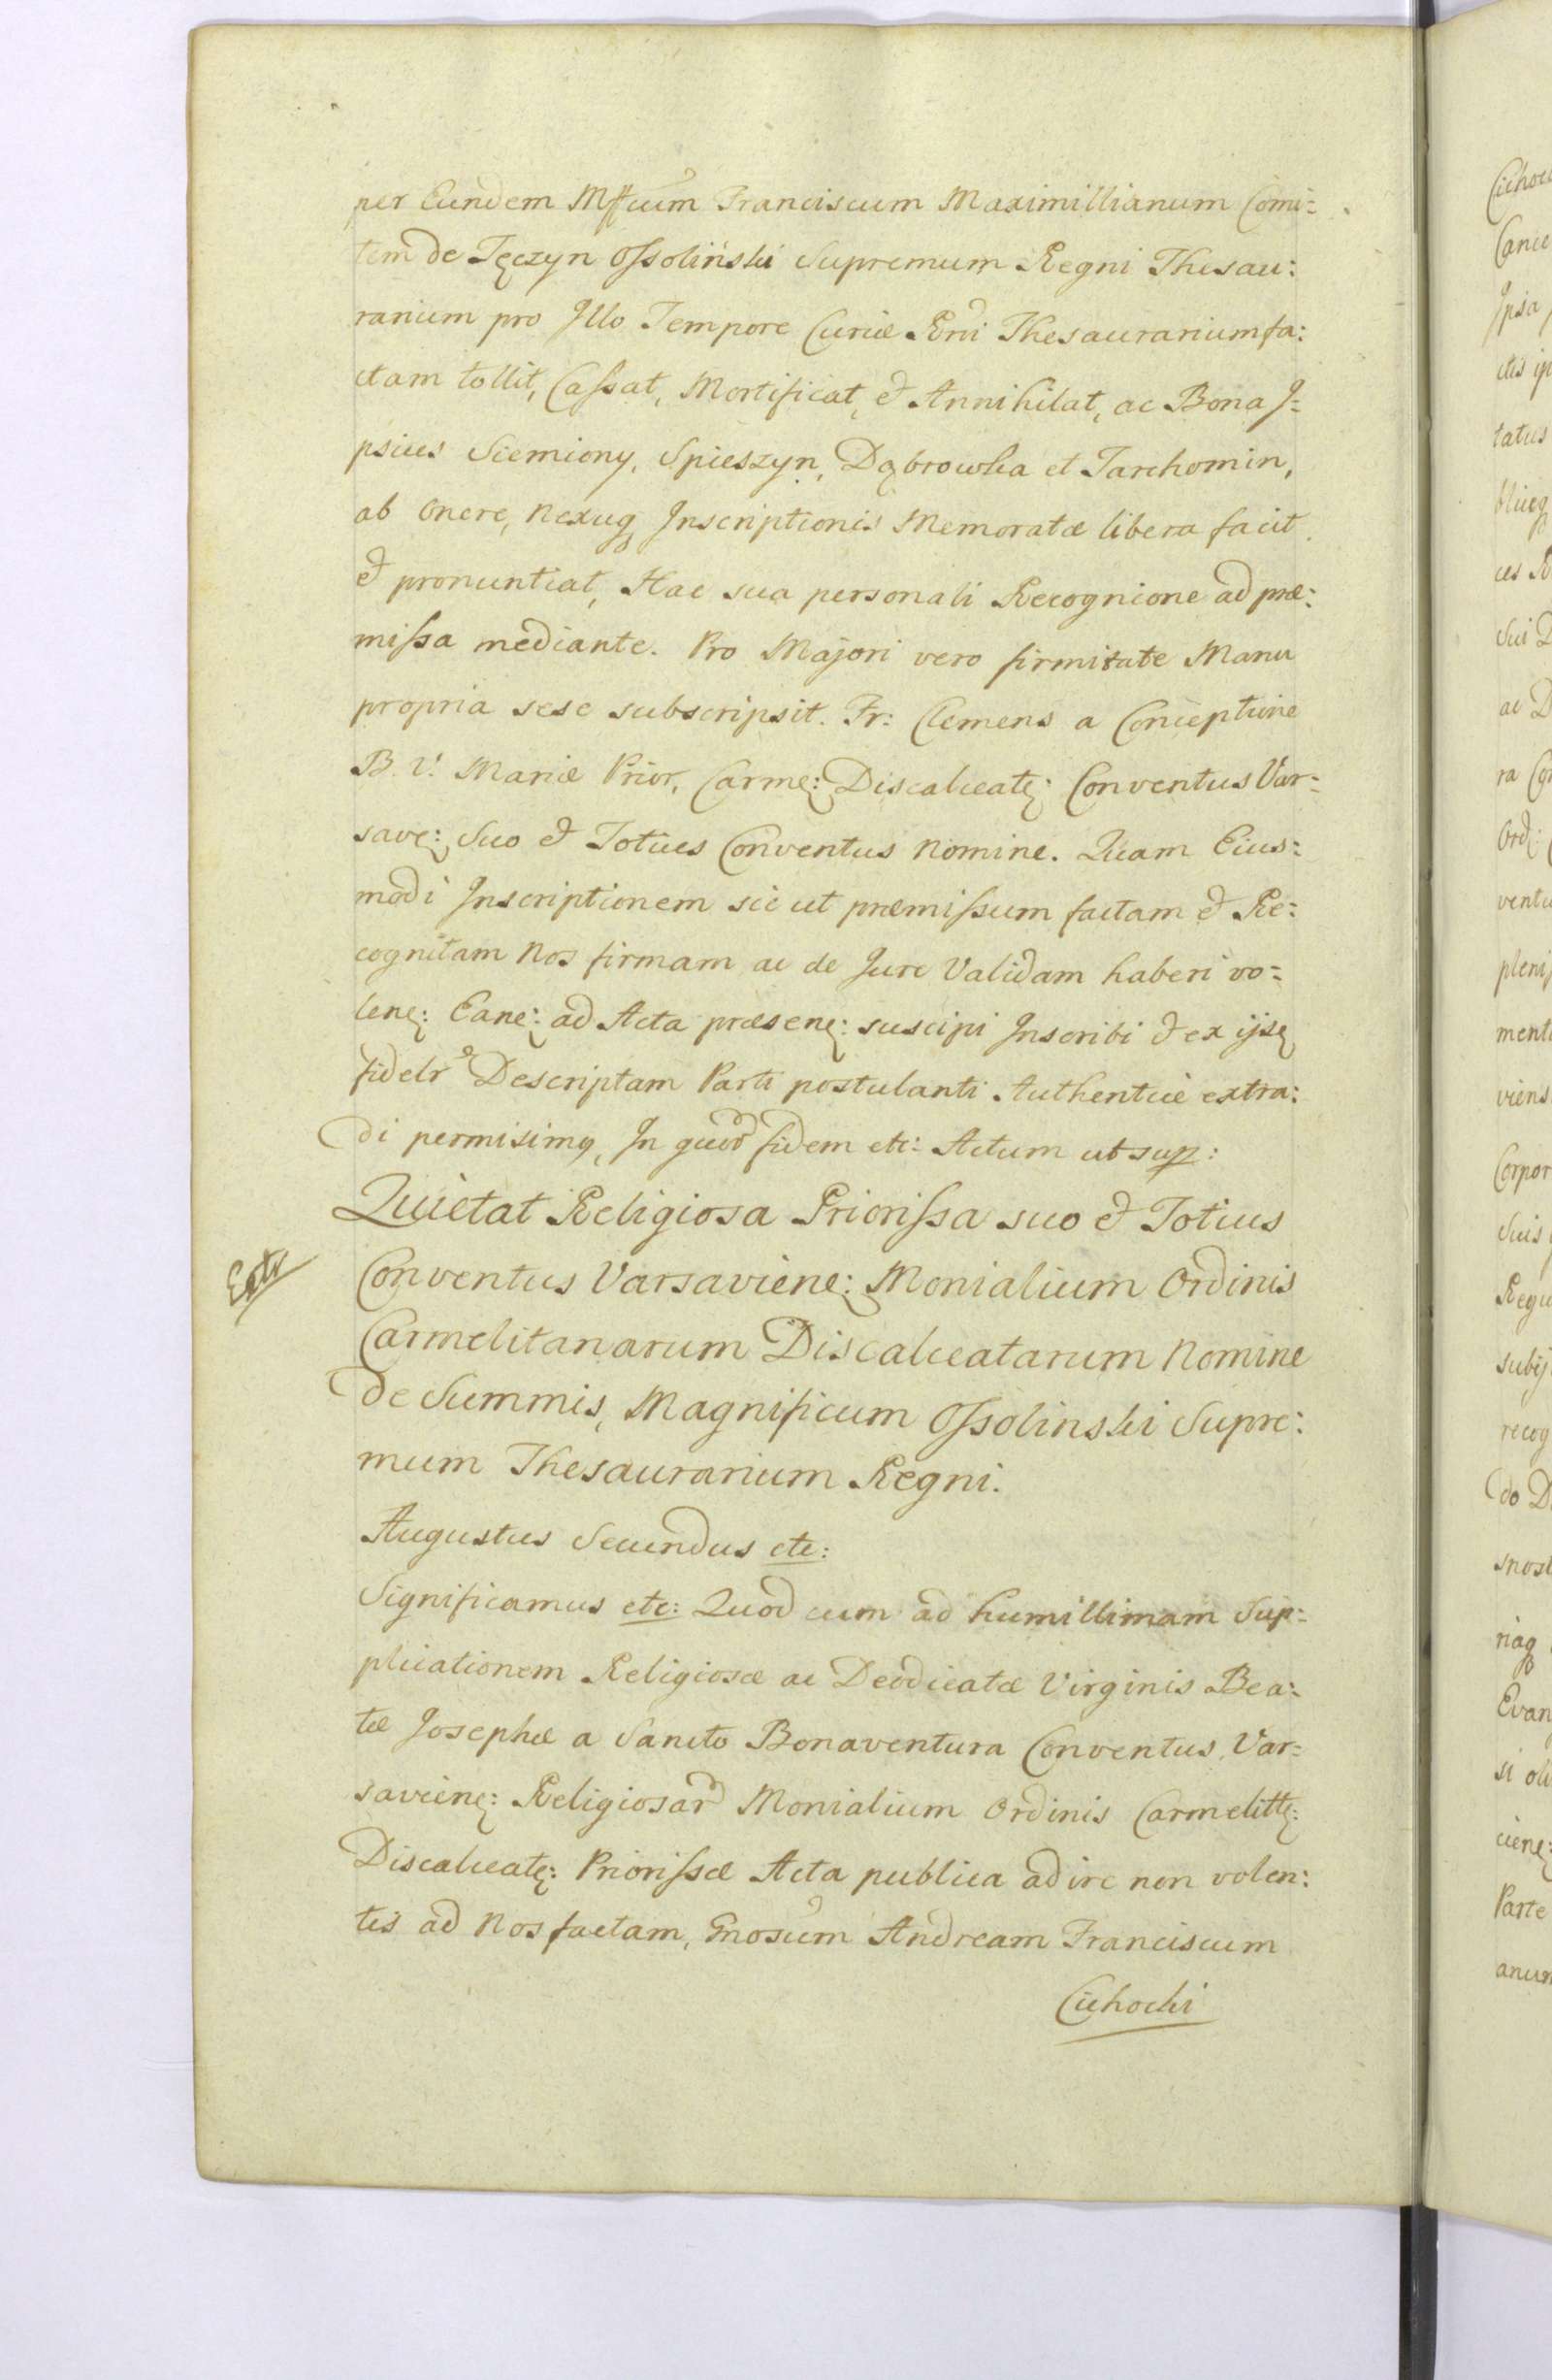 per Eundem Mffcum Franciscum Maximillianum Comi=
tem de Tęczyn Ossoliński Supremum Regni Thesau:
rarium pro Illo Tempore Curiæ Rni Thesaurarium fa:
ctam tollit, Cassat, Mortificat, et Annihilat, ac Bona I=
psius Siemiony, Spieszyn, Dąbrowka et Tarchomin,
ab Onere, Nexuq Inscriptionis Memoratæ libera facit
et pronuntiat, Hac sua personali Recognione ad præ:
missa mediante. Pro Majori vero firmitate Manu
propria sese subscripsit. Fr: Clemens a Conceptione
B. V. Mariæ Prior, Carme: Discalceatę: Conventus Var=
save: Suo et Totius Conventus Nomine. Quam Eius:
modi Inscriptionem sic ut præmissum factam et Re:
cognitam Nos firmam ac de Jure Validam haberi vo=
lenę: Eanę: ad Acta præsenę: suscipi Inscribi et ex ijsę
fidelr Descriptam Parti postulanti Authentice extra:
di permisimq, In quor fidem etc: Actum ut sup:
Quietat Religiosa Priorissa suo et Totius
Conventus Varsavienę: Monialium Ordinis
Carmelitanarum Discalceatarum Nomine
de Summis, Magnificum Ossolinski Supre:
mum Thesaurarium Regni.
Augustus Secundus etc:
Significamus etc: Quod cum ad humillimam Sup=
plicationem Religiosæ ac Deodicatæ Virginis Bea:
tæ Josephæ a Sancto Bonaventura Conventus Var=
savienę: Religiosar Monialium Ordinis Carmelittę:
Discalceatę: Priorissæ Acta publica adire non volen:
tis ad Nos factam, Gnosum Andream Franciscum
Cichocki